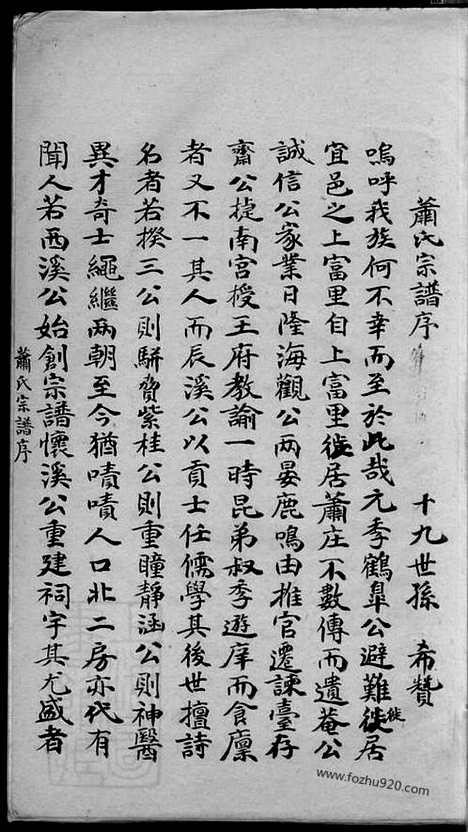 蕭氏宗譜序
十九世孫 希贊
嗚呼我族何不幸而至於此哉元季鶴臯公避難徙居
宜邑之上富里自上富里徙居蕭庄不數傳而遺菴公
誠信公家業日隆海觀公兩晏鹿鳴由推官遷諫臺存
齋公捷南宮授王府教諭一時昆弟叔季遊庠而食廩
者又不一其人而辰溪公以貢士任儒學其後世擅詩
名者若揆三公則駢賁紫桂公則重瞳靜涵公則神醫
異才奇士繩繼兩朝至今猶嘖嘖人口北二房亦代有
聞人若西溪公始創宗譜懷溪公重建祠宇其尤盛者
蕭氏宗譜序
www.fozhu920.com